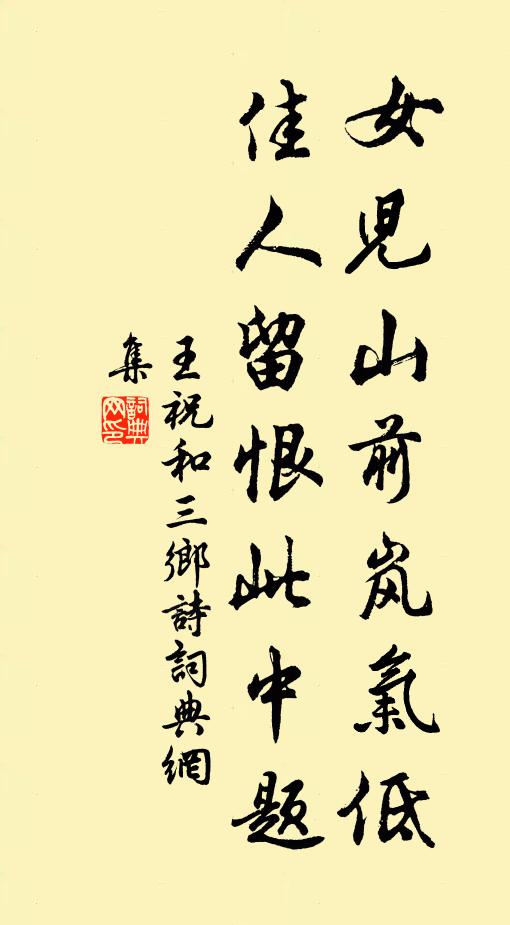 女児山前岚氣低
佳人留恨此中題
王祝和三鄉詩詞典網
集
詞典网印